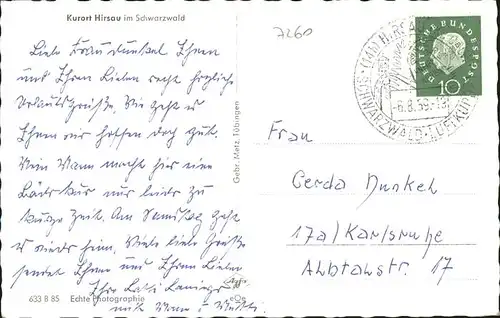 Kurort Hirsau im Schwarzwald
7260
Liebe Frau Dunkel Ihnen
und Ihren Lieben recht herzliche
Urlaubsgrüße. Wie geht es
Ihnen wir hoffen doch gut.
Mein Mann macht hier eine
Badekur nur leider zu
kurze Zeit. Am Samstag geht
es wieder heim. Viele liebe Grüße
sendet Ihnen und Ihren Lieben
Ihre
mit Mann u.
633 B 85 Echte Photographie
Gebr. Metz, Tübingen
DEUTSCHE BUNDESPOST
10
(14b) HIRSAU
-6.8.59-18
SCHWARZWALD-LUFTKURORT
Frau
Gerda Dunkel
17a/Karlsruhe
Albtalstr. 17